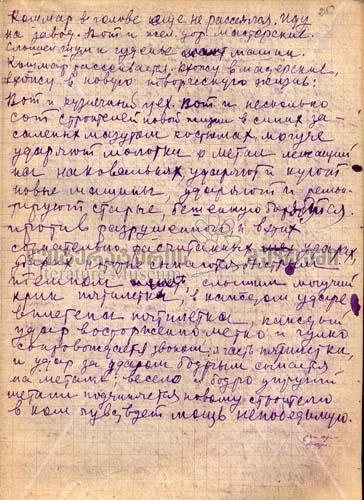 Кошмар в голове еще не рассеялся. Иду
на завод. Вот и жел. дор. мастерские.
Слышен шум и гуденье машин.
Кошмар рассеивается. Вхожу в мастерские,
вхожу в новую творческую жизнь:
Вот и кузнечный цех. Вот и несколько
сот строителей новой жизни в синих за-
саленых мазутом костюмах, могуче
ударяют молотки о метал лежащий
на наковальнях, ударяют и куют
новые машины, ударяют и ремон-
тируют старые, бешенную борются
против разрушенного, в этих
сознательно расчитанных ударах,
темпом слышим могучий
крик пятилетка, в каждом ударе
вплетена пятилетка, каждый
удар восторженно метко и гулко
сопровождается звоном, а часть пятилетки
и удар за ударом бодрым сыпятся
на металл: весело и бодро
металл подчиняется новому строителю
в ком чувствует мощь непобедимую.
Literature Museum